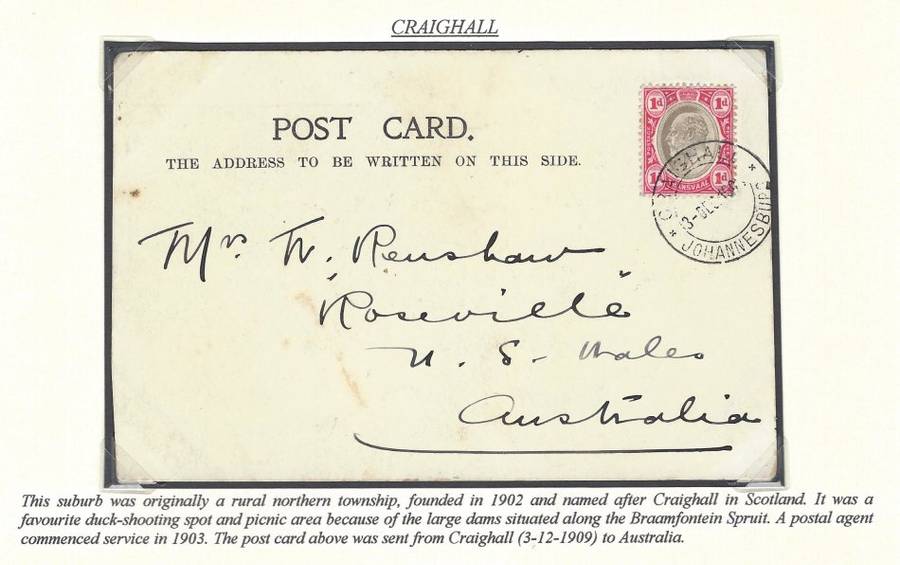 CRAIGHALL
POST CARD.
THE ADDRESS TO BE WRITTEN ON THIS SIDE.
1d 1d
TRANSVAAL
1d
CRAIGHALL
3-DEC
JOHANNESBURG
Mrs W. Renshaw
"Roseville"
N. S. Wales
Australia
This suburb was originally a rural northern township, founded in 1902 and named after Craighall in Scotland. It was a
favourite duck-shooting spot and picnic area because of the large dams situated along the Braamfontein Spruit. A postal agent
commenced service in 1903. The post card above was sent from Craighall (3-12-1909) to Australia.